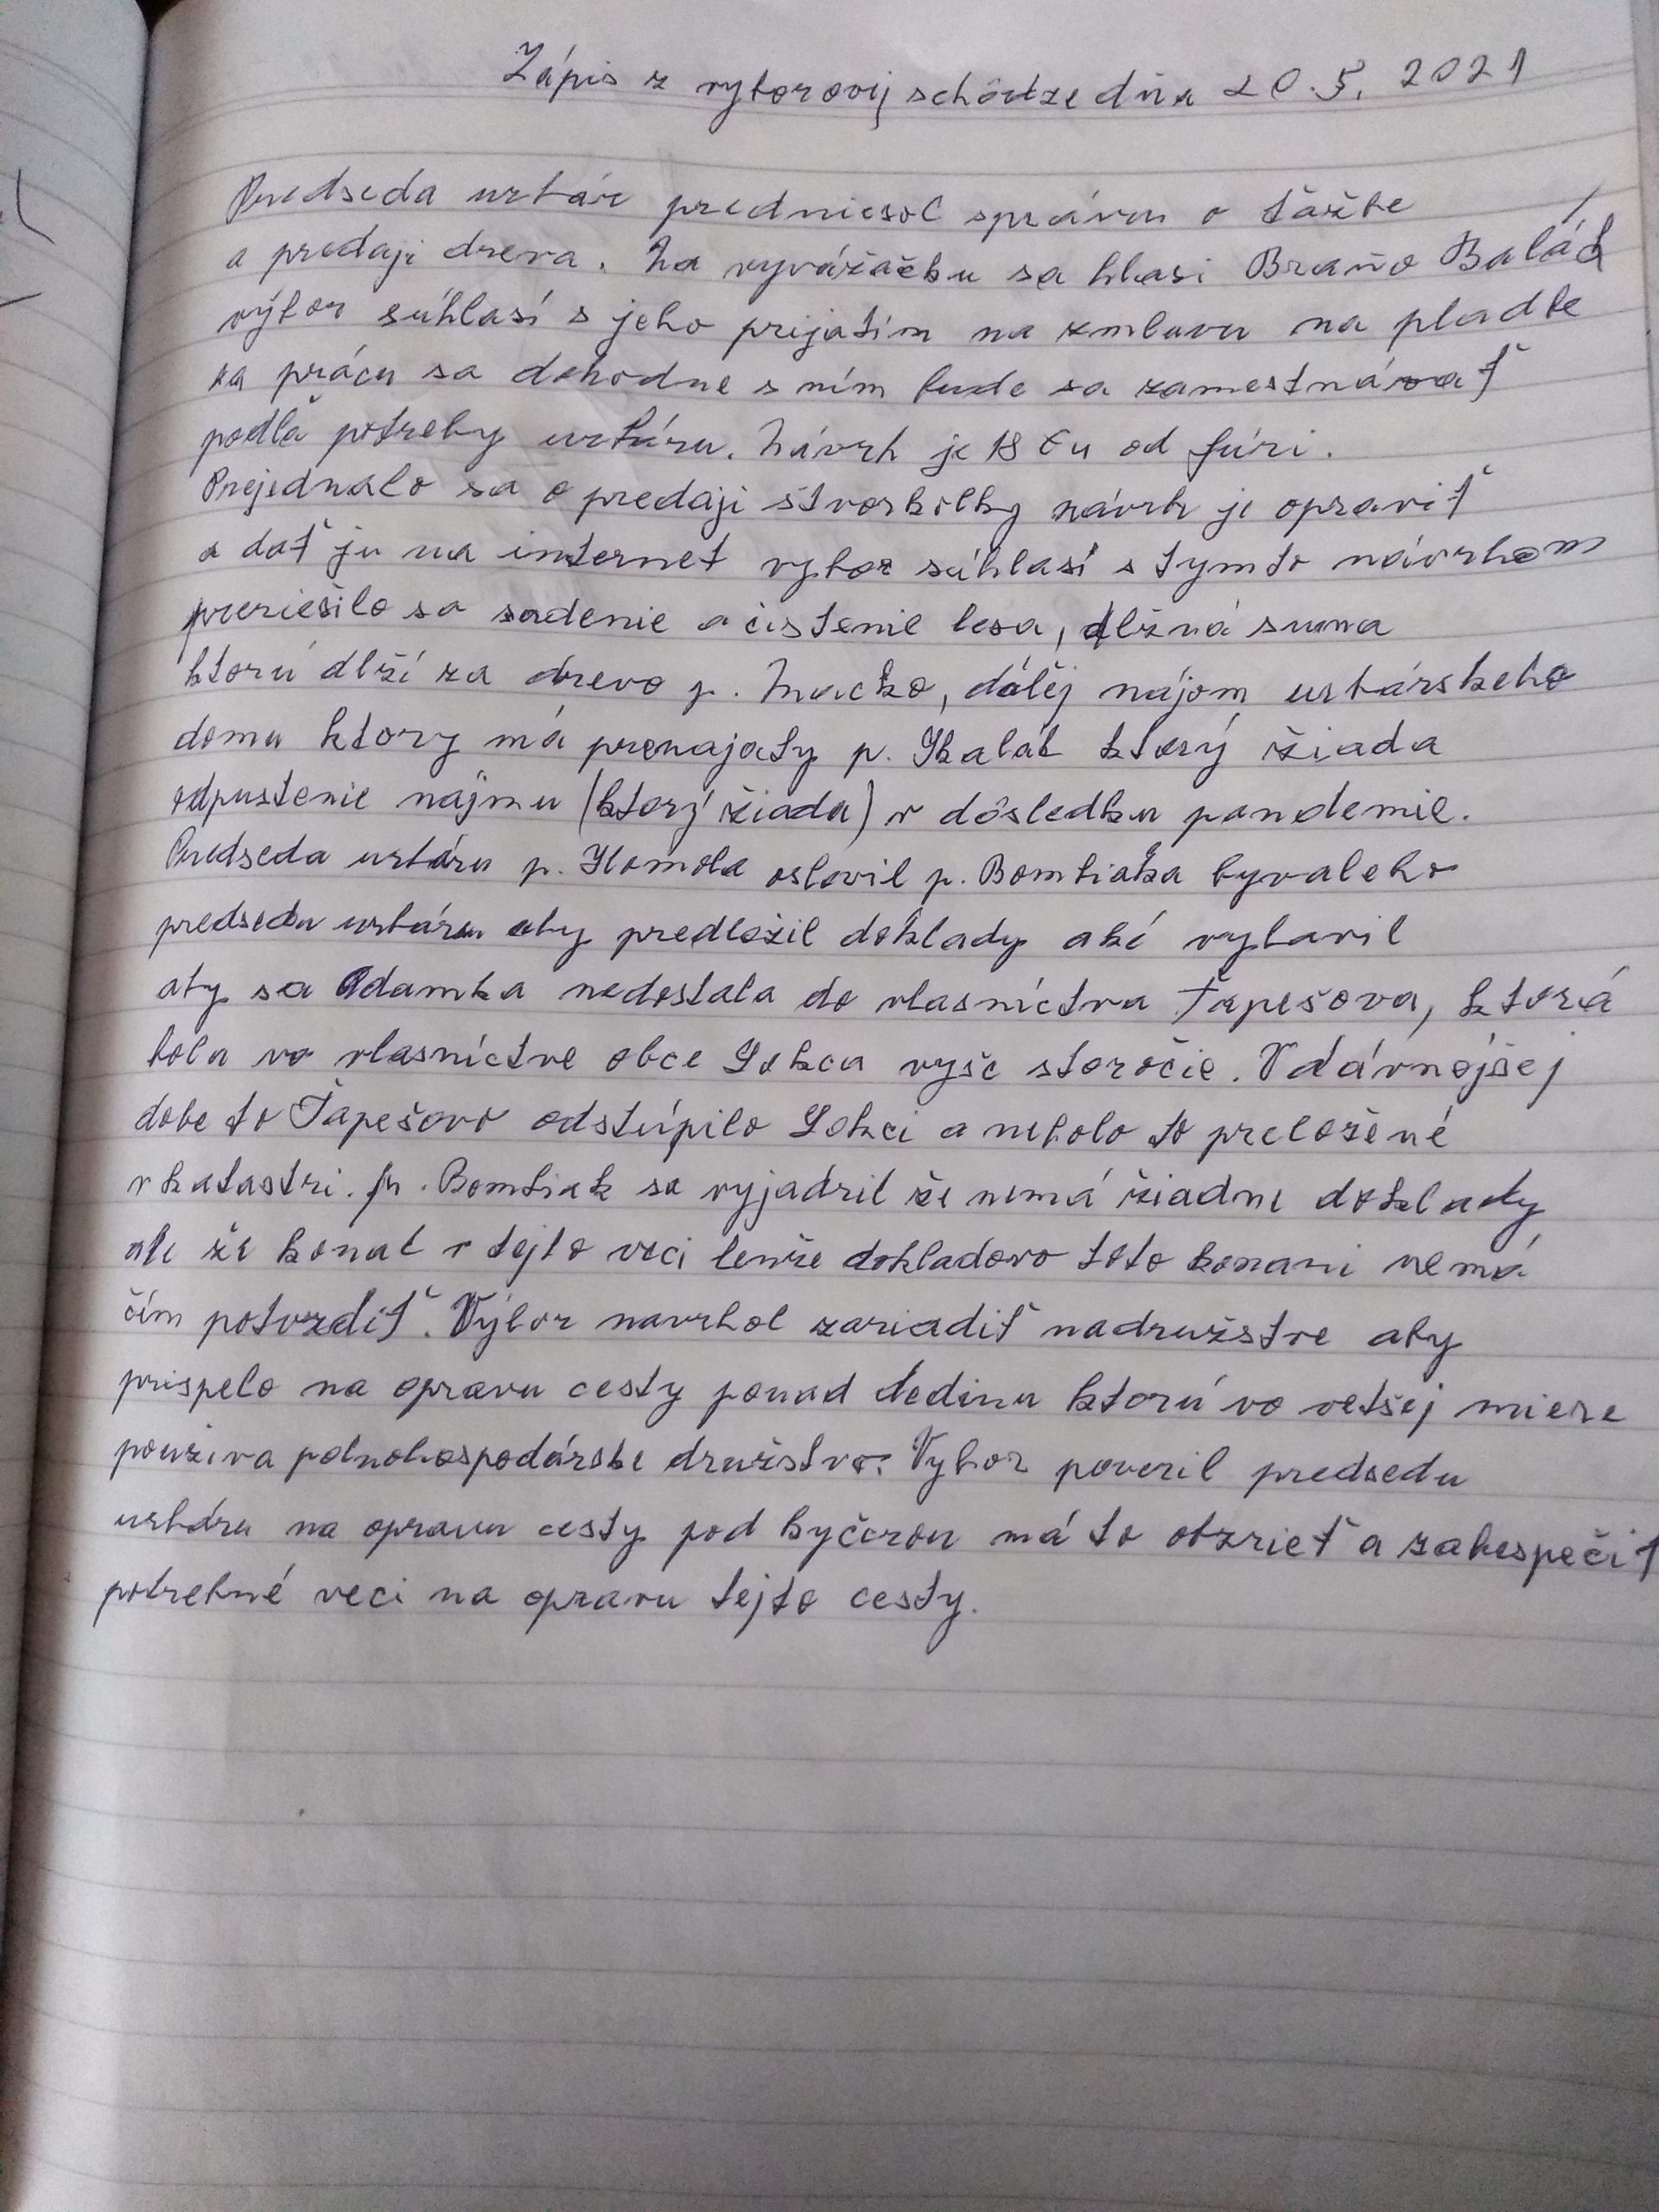 Zápis z výborovej schôdze dňa 20.5. 2021
Predseda urbár predniesol správu o ťažbe
a predaji dreva. Na vyvážačku sa hlasi Braňo Balák
výbor súhlasí s jeho prijatím na zmluvu na pladbe
za prácu sa dohodne s ním bude sa zamestnávať
podľa potreby urbáru. Návrh je 18 Eu od fúri.
Prejednalo sa o predaji štvorkolky návrh je opraviť
a dať ju na internet vybor súhlasí s tymto návrhom
preriešilo sa sadenie a čistenie lesa, dlžná suma
ktorú dlží za drevo p. , ďalej nájom urbárskeho
domu ktory má prenajaty p. Skalák ktorý žiada
odpustenie nájmu (ktorý žiada) v dôsledku pandemie.
Predseda urbáru p. Homola oslovil p. Bombiaka byvaleho
predsedu urbáru aby predložil doklady aké vybavil
aby sa Adamka nedostala do vlasníctva Ťapešova, ktorá
bola vo vlasníctve obce Lokca vyše storočie. V dávnejšej
dobe to Ťapešovo odstúpilo Lokci a nebolo to preložené
v katastri. p. Bombiak sa vyjadril že nemá žiadne doklady
ale že konal v tejto veci lenže dokladovo toto konani nemá
čím potvrdiť. Výbor navrhol zariadiť nadružstve aby
prispelo na opravu cesty ponad dedinu ktorú vo vetšej miere
použiva polnohospodárske družstvo. Vybor poveril predsedu
urbáru na opravu cesty pod kyčerou má to obzrieť a zabespečiť
potrebné veci na opravu tejto cesty.